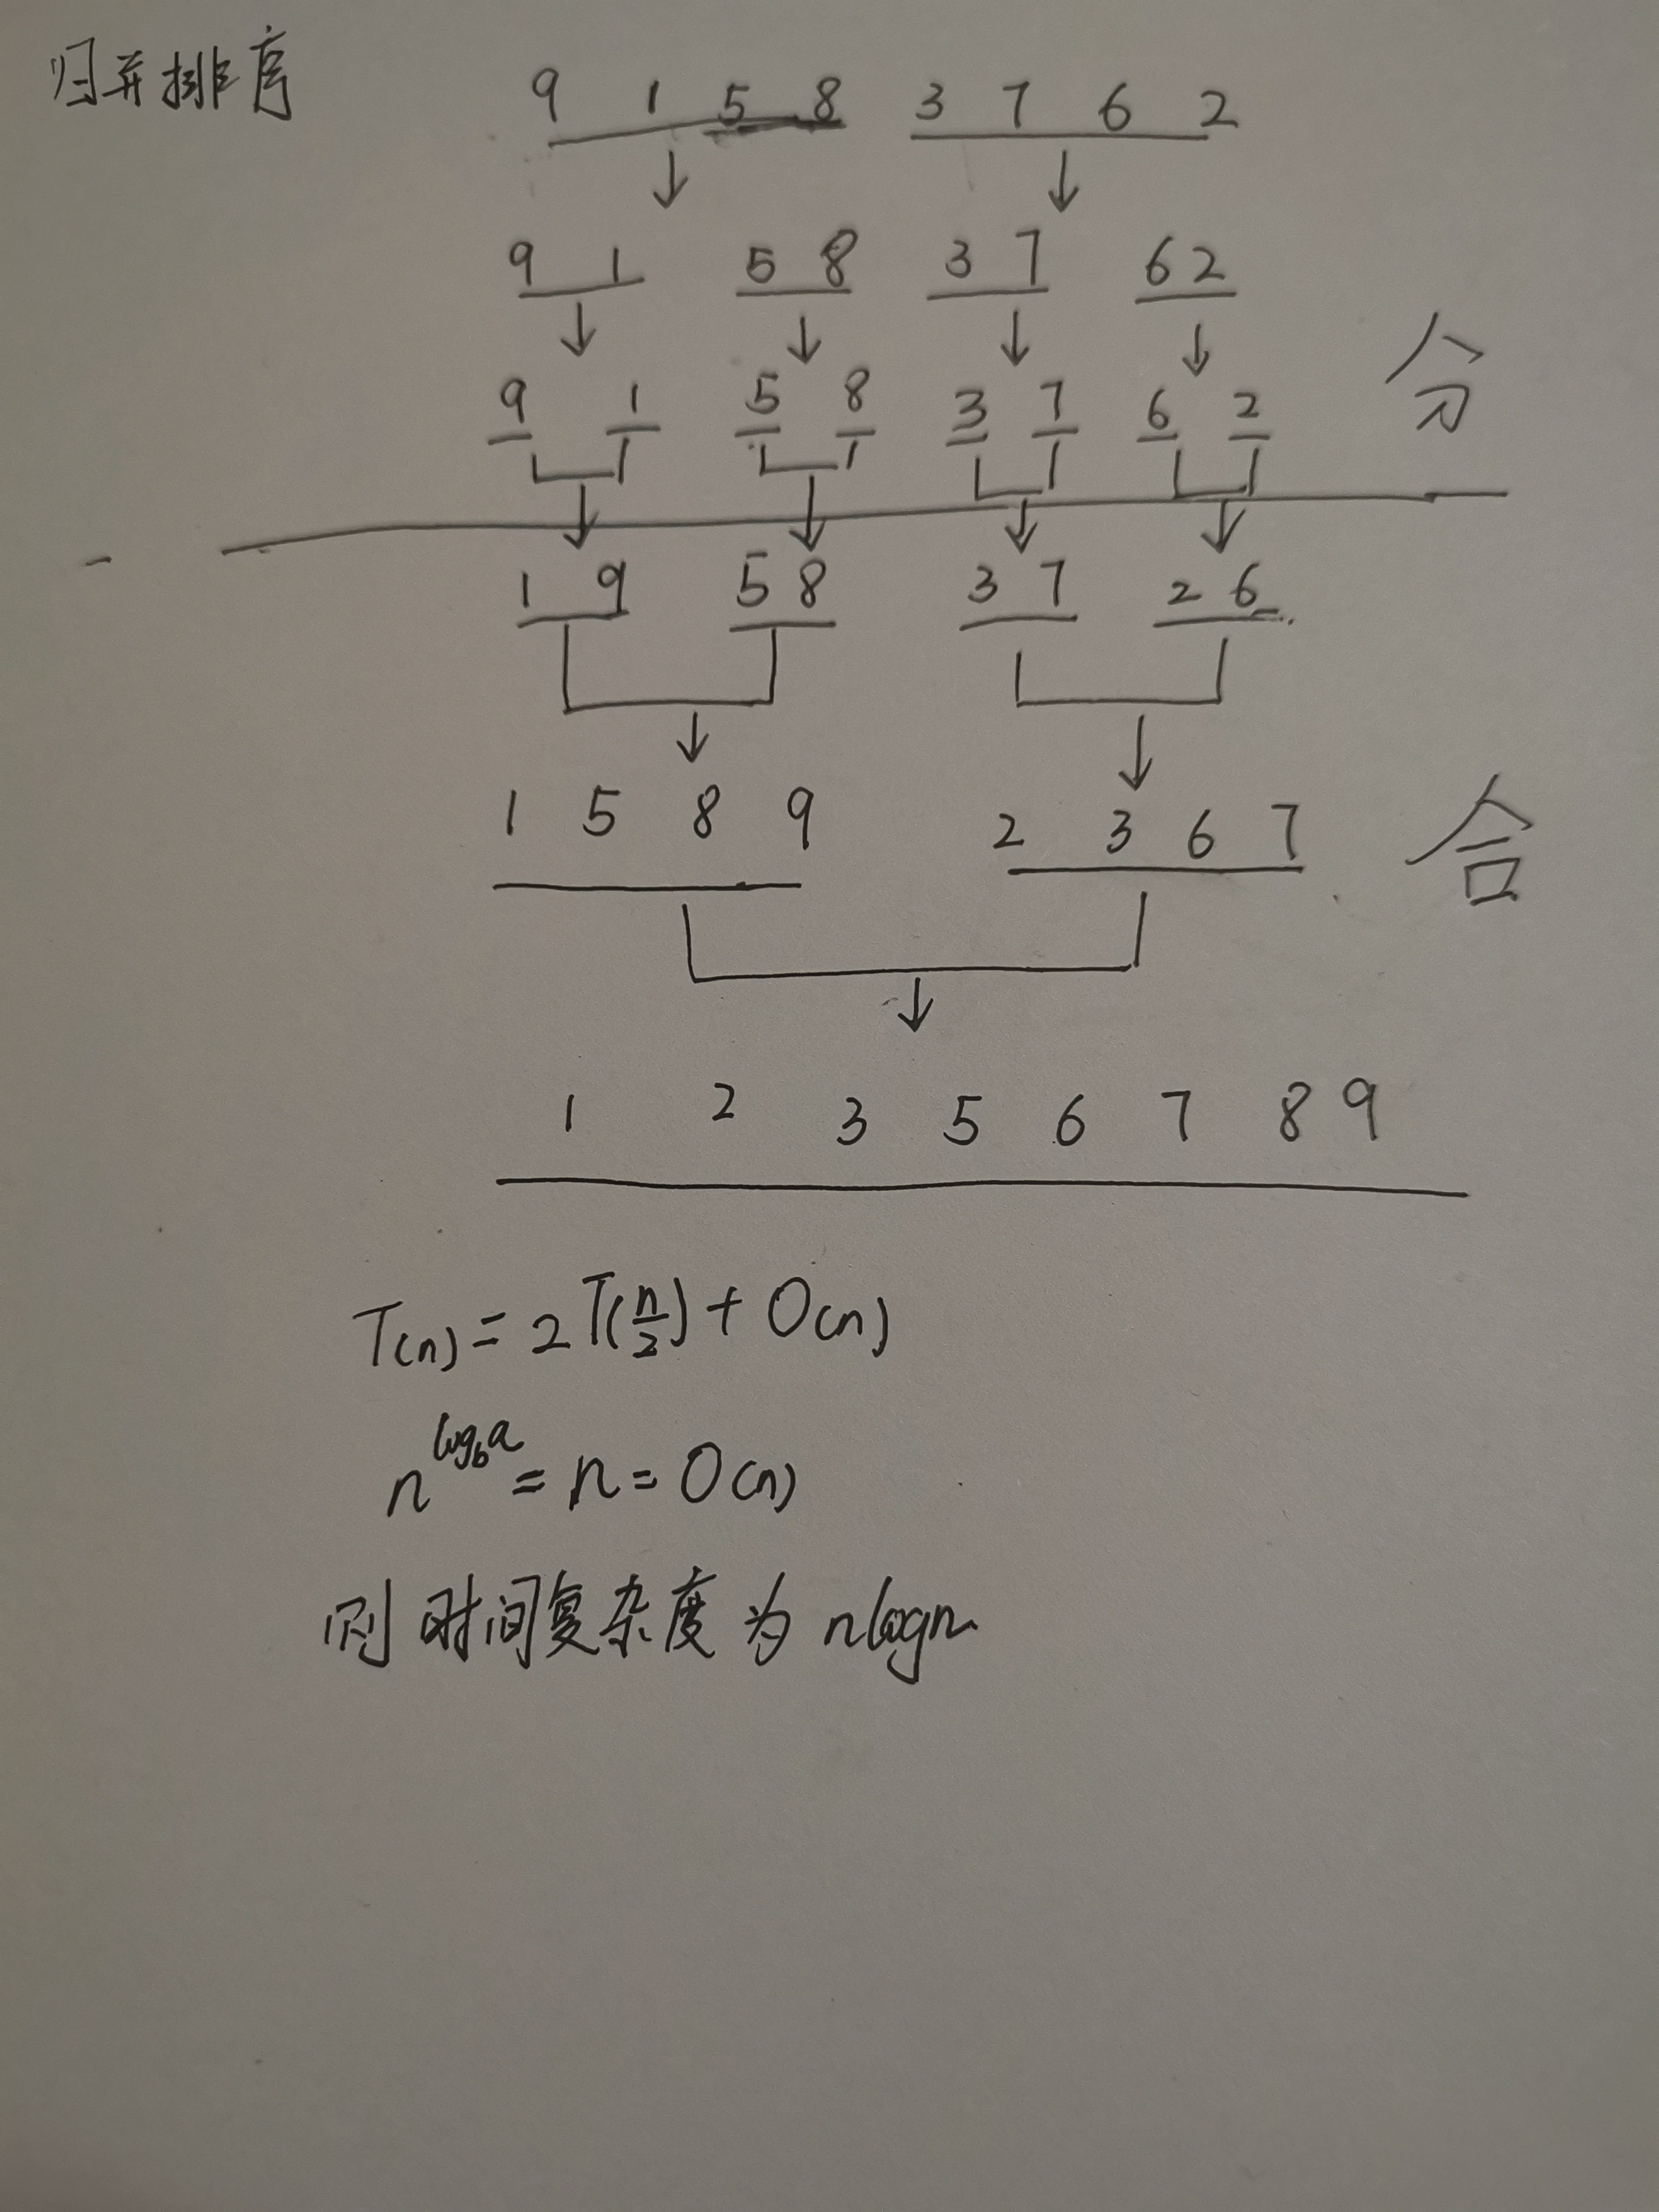 归并排序
9 1 5 8 3 7 6 2
9 1 5 8 3 7 6 2
分
9 1 5 8 3 7 6 2
1 9 5 8 3 7 2 6
1 5 8 9 2 3 6 7
合
1 2 3 5 6 7 8 9
T(n) = 2T(n/2) + O(n)
n^log_b a = n = O(n)
则时间复杂度为 nlogn